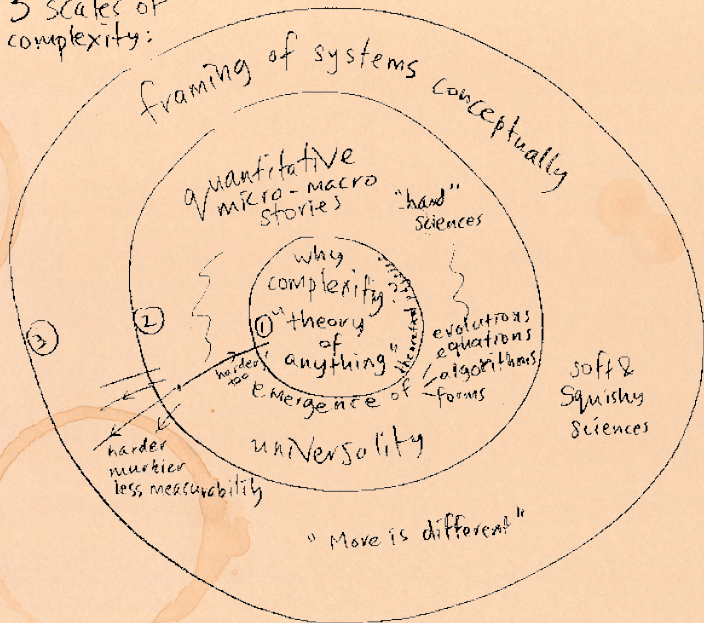 3 scales of
complexity:
framing of systems conceptually
quantitative
micro-macro
stories
"hard"
sciences
why
complexity
"theory
of
anything"
1
2
3
harder
too
emergence of
evolutions
equations
algorithms
forms
universality
soft &
squishy
sciences
harder
murkier
less measurability
"More is different"